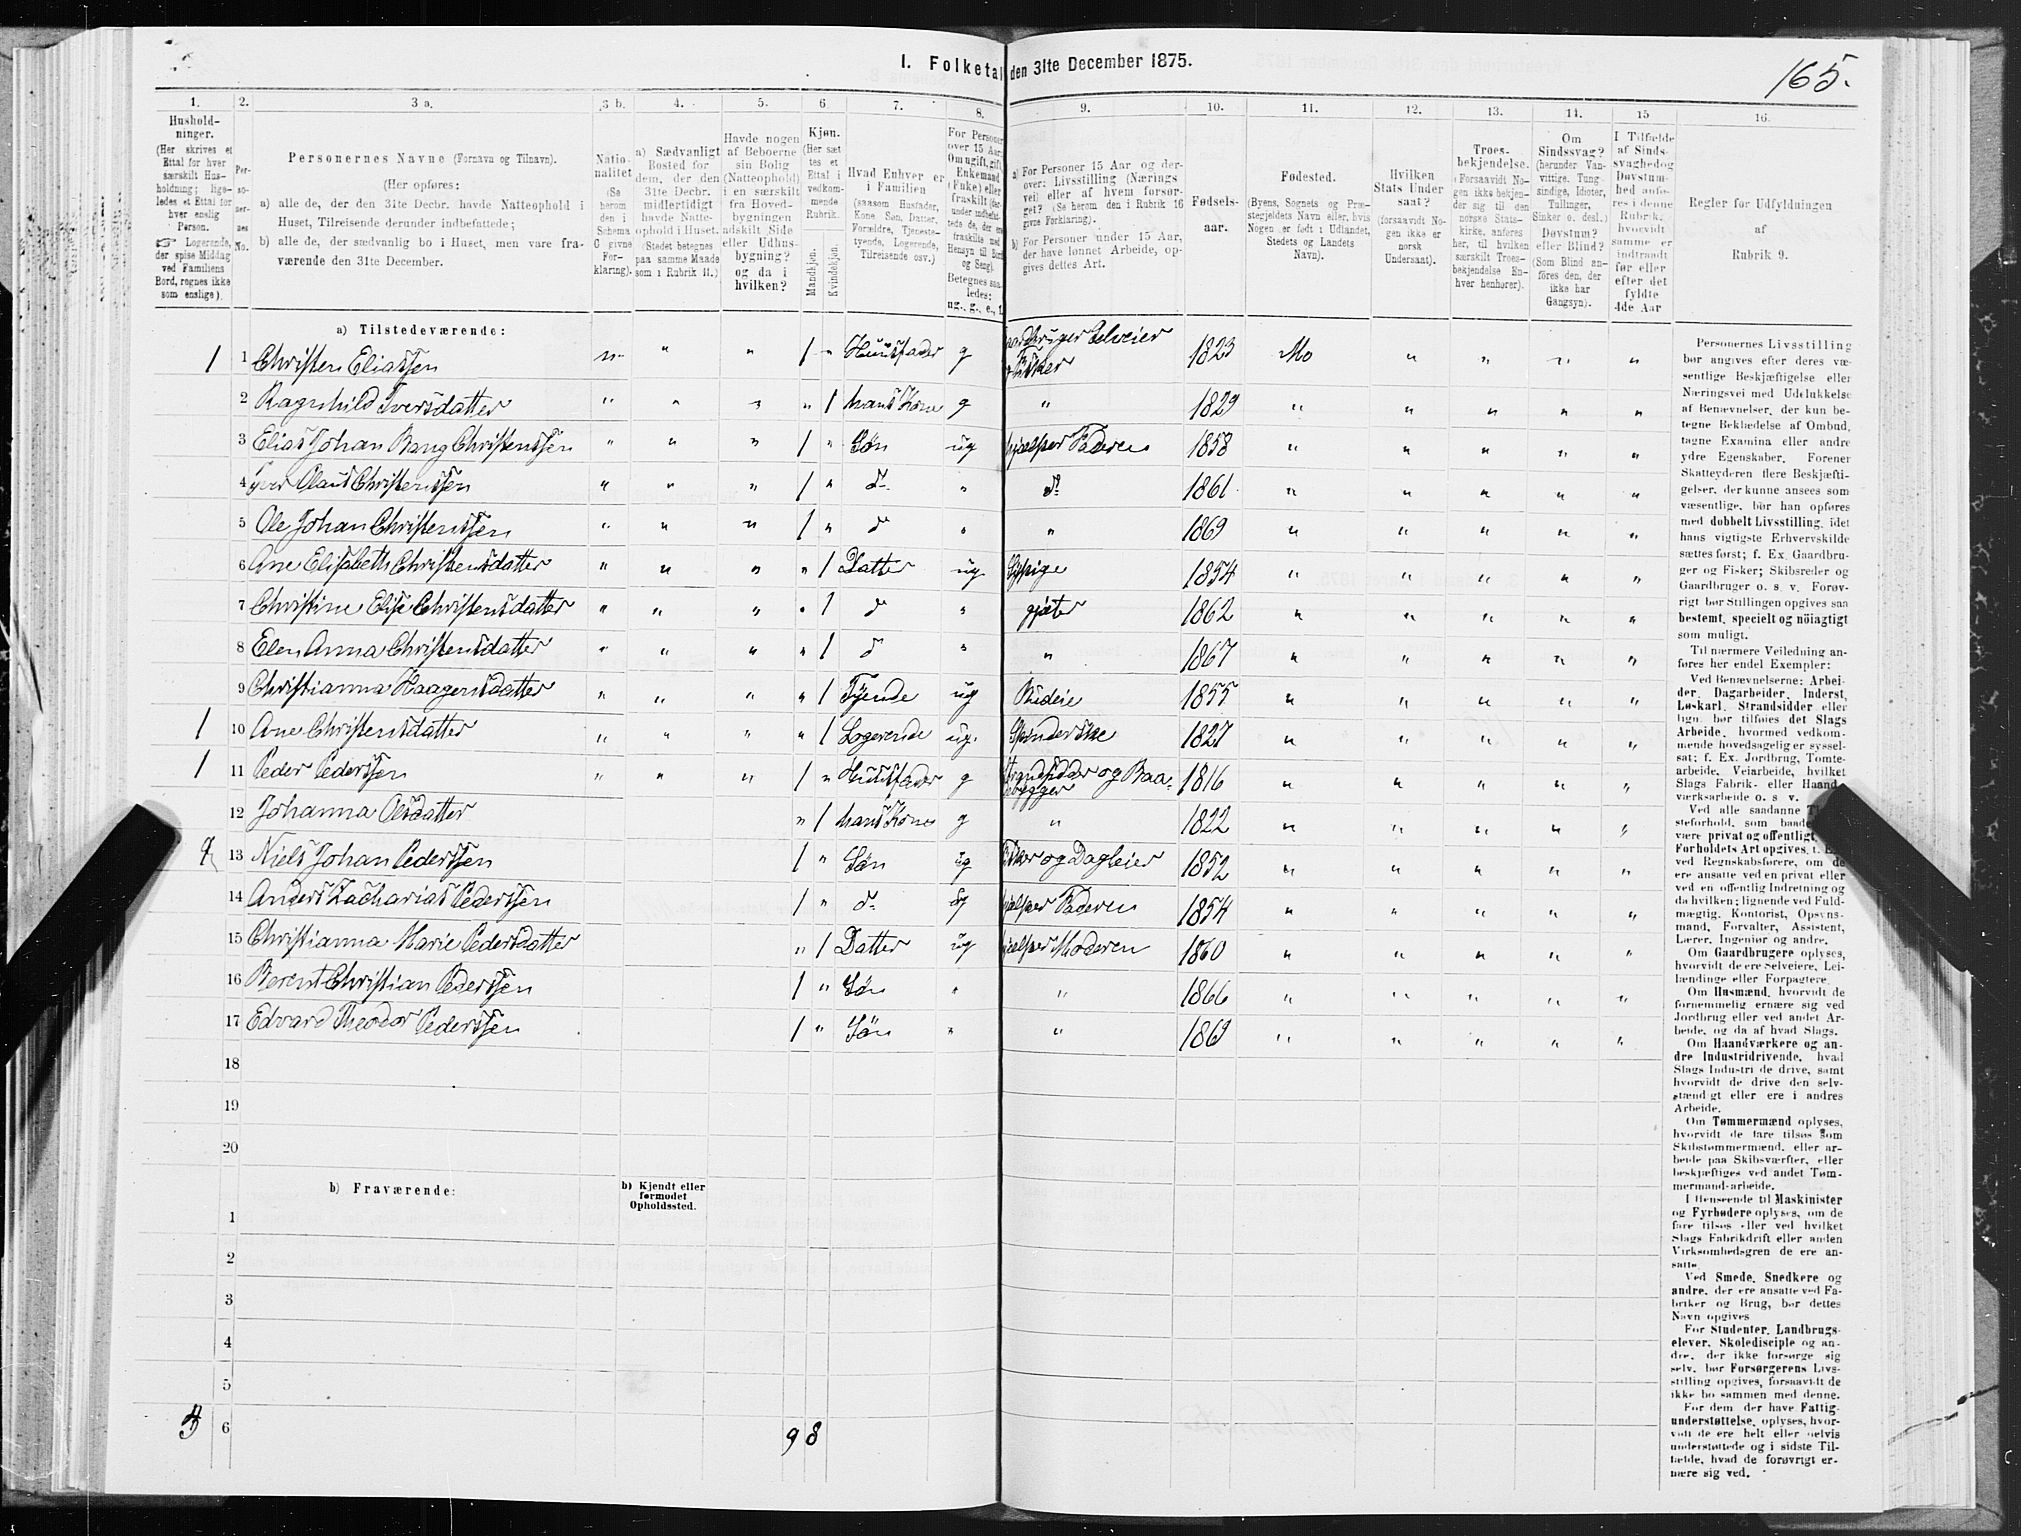 I. Folketal den 31te December 1875.
165.
1. 2. 3 a. 3 b. 4. 5. 6 7. 8. 9. 10. 11. 12. 13. 14. 15 16.
Hushold-
ninger.
(Her skrives et
Ettal for hver
særskilt Hus-
holdning; lige-
ledes et Ettal for
hver enslig
Person.
☞ Logerende,
der spise Middag
ved Familiens
Bord, regnes ikke
som enslige).
Per-
so-
ner-
nes
No.
Personernes Navne (Fornavn og Tilnavn).
(Her opføres:
a) alle de, der den 31te Decbr. havde Natteophold i
Huset, Tilreisende derunder indbefattede;
b) alle de, der sædvanlig bo i Huset, men vare fra-
værende den 31te December.
Natio-
nalitet
(Se
herom
den i
Schema
C givne
For-
klaring).
a) Sædvanligt
Bosted for
dem, der den
31te Decbr.
midlertidigt
havde Natte-
ophold i Huset.
(Stedet betegnes
paa samme Maade
som i Rubrik 11.)
Havde nogen
af Beboerne
sin Bolig
(Natteophold)
i en særskilt
fra Hoved-
bygningen
adskilt Side
eller Udhus-
bygning?
og da i
hvilken?
Kjøn.
(Her sæt
tes et
Ettal i
vedkom-
mende
Rubrik.
Mandkjøn.
Kvindekjøn.
Hvad Enhver er
i Familien
(saasom Husfader,
Kone Søn, Datter,
Forældre, Tjeneste-
tyende, Logerende,
Tilreisende osv.)
For Personer
over 15 Aar:
Om ugift, gift,
Enkemand
(Enke) eller
fraskilt
Betegnes saa-
ledes:
ug., g., e., f.
a) For Personer 15 Aar og der-
over: Livsstilling (Nærings
vei) eller af hvem forsør-
get? (Se herom den i Rubrik 16
givne Forklaring).
b) For Personer under 15 Aar,
der have lønnet Arbeide, op-
gives dettes Art.
Fødsels-
aar.
Fødested.
(Byens, Sognets og Præ-
stegjeldets Navn eller, hvis
Nogen er født i Udlandet,
Stedets og Landets
Navn).
Hvilken
Stats Under
saat?
(forsaavidt No-
gen ikke er
norsk
Undersaat).
Troes-
bekjendelse.
(Forsaavidt No-
gen ikke bekjen-
der sig til den
norske Stats-
kirke, anføres
her, til hvilken
særskilt Troes-
bekjendelse En-
hver henhører).
Om
Sindssvag?
(herunder Van-
vittige, Tung-
sindige, Idioter,
Tullinger,
Sinker o. desl.)
Døvstum?
eller Blind?
(Som Blind an-
føres den, der
ikke har
Gangsyn).
I Tilfælde
af Sinds-
svaghed og
Døvstum-
hed anfø-
res i denne
Rubrik,
hvorvidt
samme er
indtraadt
før eller
efter det
fyldte
4de Aar
Regler for Udfyldningen
af
Rubrik 9.
a) Tilstedeværende:
1 1 Christen Eliassen n " " 1 " Huusfader g Selveier 1823 Mo " " " "
Fisker
2 Ragnhild Iversdatter " " " " 1 hans Kone g " 1829 " " " " "
3 Elias Johan Bang Christenssen " " " 1 " Søn ug hjælper Faderen 1858 " " " " "
4 Iver Olaus Christenssen " " " 1 " d " do 1861 " " " " "
5 Ole Johan Christenssen " " " 1 " d " " 1869 " " " " "
6 Ane Elisabeth Christensdatter " " " " 1 Datter ug Sypige 1854 " " " " "
7 Christine Elise Christensdatter " " " " 1 d " gjæter 1862 " " " " "
8 Elen Anna Christensdatter " " " " 1 d " " 1867 " " " " "
9 Christianna Haagensdatter " " " " 1 Tyende ug Budeie 1855 " " " " "
1 10 Ane Christensdatter " " " " 1 Logerende ug. Spinderske 1827 " " " " "
1 11 Peder Pederssen " " " 1 " Huusfader g Strandsidder og Baa- 1816 " " " " "
debygger
12 Johanna Olsdatter " 1 hans Kone g " 1822 " " " " "
13 Niels Johan Pederssen 1 " Søn ug Fisker og Dagleier 1852 " " " " "
14 Anders Zacharias Pederssen 1 " d ug hjælper Faderen 1854 " " " " "
15 Christianna Marie Pedersdatter " 1 Datter ug hjælper Moderen 1860 " " " " "
16 Berent Christian Pederssen 1 " Søn " " 1866 " " " " "
17 Edvard Theodor Pederssen 1 " Søn " " 1869 " " " " "
18
19
20
b) Fraværende:
b) Kjendt eller
formodet
Opholdssted.
1
2
3
4
5
6
9 8
Personernes Livsstilling
bør angives efter deres væ-
sentlige Beskjæftigelse eller
Næringsvei med Udelukkelse
af Benævnelser, der kun be-
tegne Beklædelse af Ombud,
tagne Examina eller andre
ydre Egenskaber. Forener
Skatteyderen flere Beskjæfti-
gelser, der kunne ansees som
væsentlige, bør han opføres
med dobbelt Livsstilling, idet
hans vigtigste Erhvervskilde
sættes først; f. Ex. Gaardbru-
ger og Fisker; Skibsreder og
Gaardbruger o. s. v. Forøv-
rigt bør Stillingen opgives saa
bestemt, specielt og nöiagtigt
som muligt.
Til nærmere Veiledning an-
føres her endel Exempler:
Ved Benævnelserne: Arbei-
der, Dagarbeider, Inderst,
Løskarl, Strandsidder eller
lign. bør tilføies det Slags
Arbeide, hvormed vedkom-
mende hovedsagelig er syssel-
sat; f. Ex. Jordbrug, Tomte-
arbeide, Veiarbeide, hvilket
Slags Fabrik- eller Haand-
værksarbeide o. s v.
Ved alle saadanne
steforhold, som baade
være privat og offentligt
Forholdets Art opgives,
ved Regnskabsførere, om de
ere ansatte ved en privat eller
ved en offentlig Indretning og
da hvilken; lignende ved Fuld-
mægtig, Kontorist, Opsyns-
mand, Forvalter, Assistent,
Lærer, Ingeniør og andre.
Om Gaardbrugere oplyses,
hvorvidt de ere Selveiere, Lei-
lændinge eller Forpagtere.
Om Husmænd, hvorvidt de
fornemmelig ernære sig ved
Jordbrug eller ved andet Ar-
beide, og da af hvad Slags.
Om Haandværkere og an-
dre Industridrivende, hvad
Slags Industri de drive, samt
hvorvidt de drive den selv-
stændigt eller ere i andres
Arbeide.
Om Tømmermænd oplyses,
hvorvidt de fare tilsøs som
Skibstømmermænd, eller ar-
beide paa Skibsværfter, eller
beskjæftiges ved andet Tøm-
mermandsarbeide.
I Henseende til Maskinister
og Fyrbødere oplyses, om de
fare tilsøs eller ved hvilket
Slags Fabrikdrift eller anden
Virksomhedsgren de ere an-
satte.
Ved Smede, Snedkere og
andre, der ere ansatte ved Fa-
briker og Brug, bør dettes
Navn opgives
For Studenter, Landbrugs-
elever, Skoledisciple og an-
dre, der ikke forsørge sig
selv, bør Forsørgerens Livs-
stilling opgives, forsaavidt de
ikke bo sammen med denne.
For dem, der have Fattig-
understøttelse, oplyses, hvor-
vidt de ere helt eller delvis
understøttede og i sidste Til-
fælde, hvad de forøvrigt er-
nære sig ved.